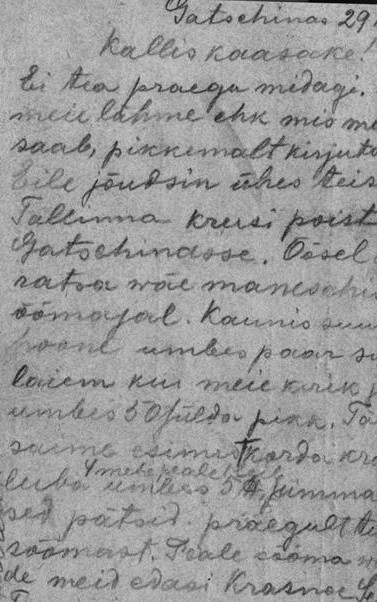 Gatschinas 29
Kallis kaasake!
Ei tea praegu midagi.
meie lähme ehk mis me
saab, pikkemalt kirjuta
Eile jõudsin ühes teis
Tallinna kreisi poist
Gatschinasse. Öösel
ratsa wäe maneschis
öömajal. Kaunis suu
hoone umbes paar s
laiem kui meie kirik
umbes 50 sülda pikk. Tä
saime esimist korda kro
4 mehe peale
leiba umbes 5 ℔, jumma
sed pätsid. praegult
söömast. Peale sööma
de meid edasi Krasnoe Se